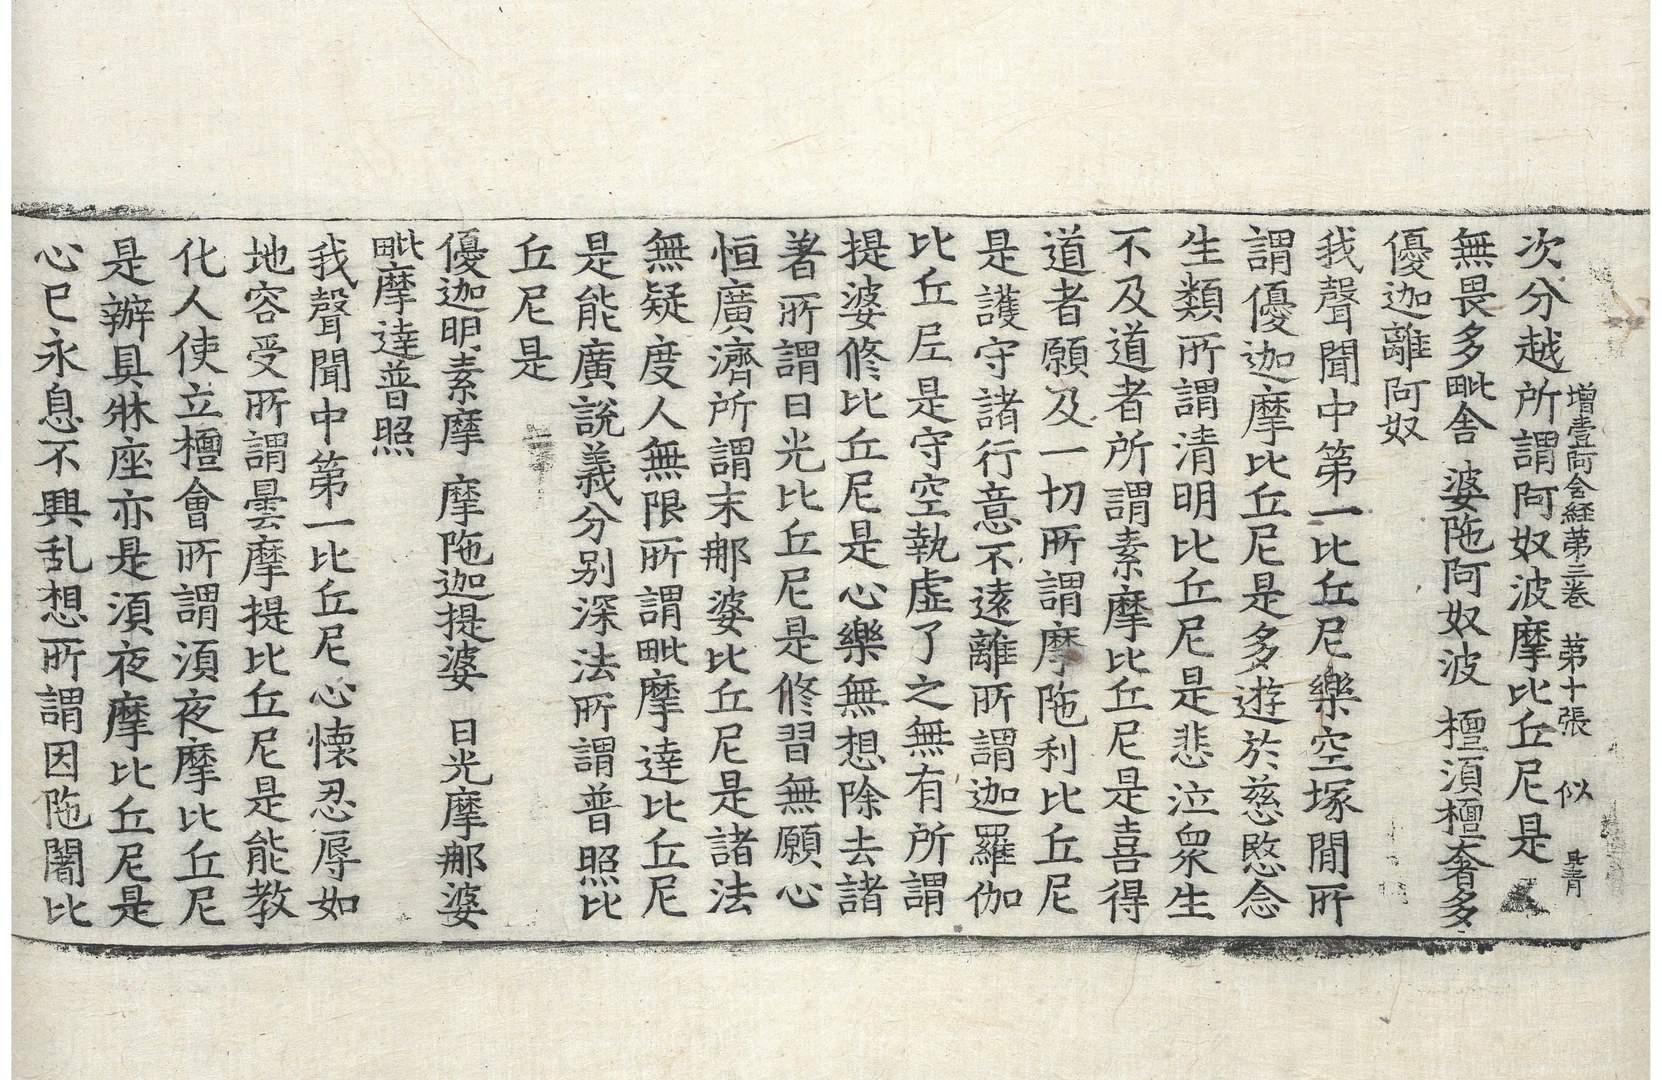 增壹阿含経苐三卷 苐十張 似
次分越所謂阿奴波摩比丘尼是
無畏多毗舍 婆陁阿奴波 檀湏檀奢多
優迦離阿奴
我聲聞中第一比丘尼樂空塚間所
謂優迦摩比丘尼是多遊於慈愍念
生類所謂清明比丘尼是悲泣衆生
不及道者所謂素摩比丘尼是喜得
道者願及一切所謂摩陁利比丘尼
是護守諸行意不遠離所謂迦羅伽
比丘𡰱是守空執虛了之無有所謂
提婆修比丘尼是心樂無想除去諸
著所謂日光比丘尼是修習無願心
恒廣濟所謂末郍婆比丘尼是諸法
無疑度人無限所謂毗摩達比丘尼
是能廣說義分别深法所謂普照比
丘尼是
優迦明素摩 摩陁迦提婆 日光摩郍婆
毗摩達普照
我聲聞中第一比丘尼心懐忍辱如
地容受所謂曇摩提比丘尼是能教
化人使立檀會所謂湏夜摩比丘尼
是辦具牀座亦是湏夜摩比丘尼是
心已永息不興乱想所謂因陁闍比